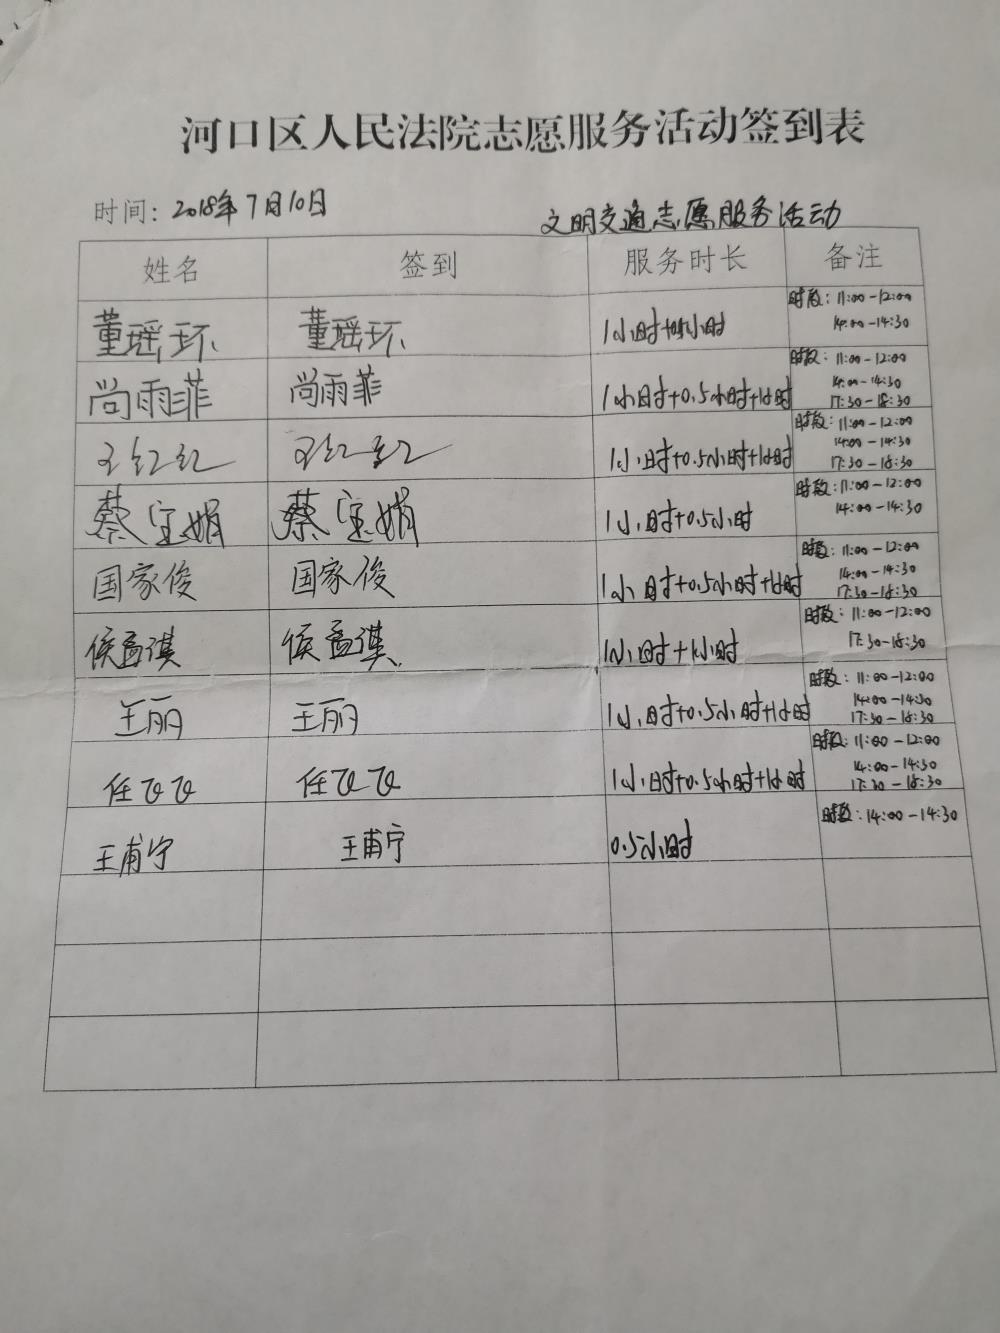 河口区人民法院志愿服务活动签到表
时间：2018年7月10日
文明交通志愿服务活动
姓名 签到 服务时长 备注
董瑶环 董瑶环 1小时+0.5小时 时段：11:00-12:00
14:00-14:30
尚雨菲 尚雨菲 1小时+0.5小时+1小时 时段：11:00-12:00
14:00-14:30
17:30-18:30
王红红 王红红 1小时+0.5小时+1小时 时段：11:00-12:00
14:00-14:30
17:30-18:30
蔡宝娟 蔡宝娟 1小时+0.5小时 时段：11:00-12:00
14:00-14:30
国家俊 国家俊 1小时+0.5小时+1小时 时段：11:00-12:00
14:00-14:30
17:30-18:30
侯孟琪 侯孟琪 1小时+1小时 时段：11:00-12:00
17:30-18:30
王丽 王丽 1小时+0.5小时+1小时 时段：11:00-12:00
14:00-14:30
17:30-18:30
任飞飞 任飞飞 1小时+0.5小时+1小时 时段：11:00-12:00
14:00-14:30
17:30-18:30
王甫宁 王甫宁 0.5小时 时段：14:00-14:30